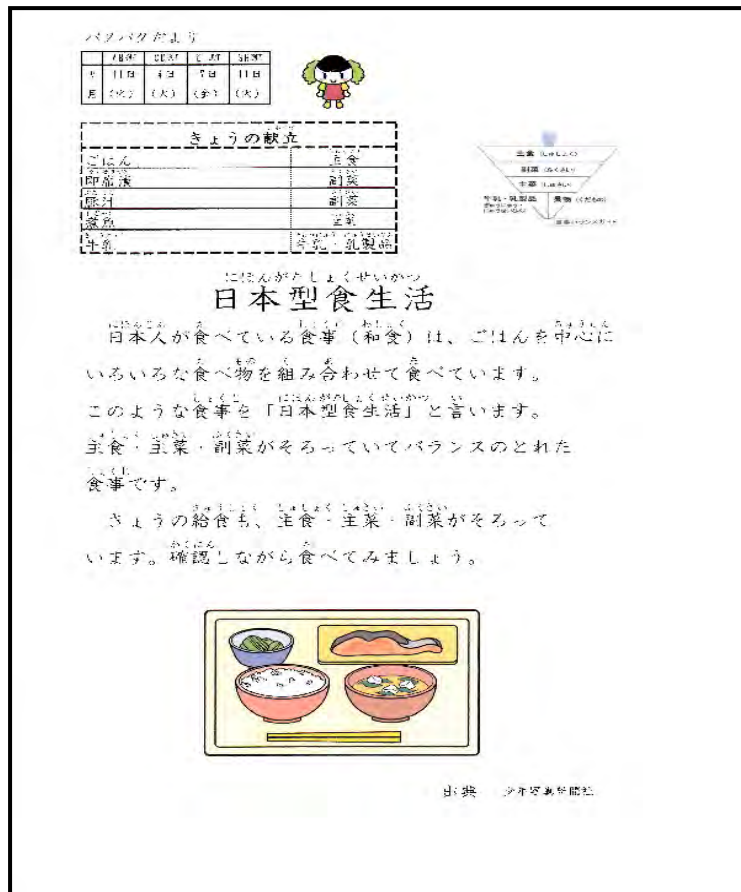 パクパクだより
11日 4日 7日 11日
月 (火) (火) (金) (火)
きょうの献立
ごはん 主食
即席漬 副菜
豚汁 副菜
煮魚 主菜
牛乳 牛乳・乳製品
主食 (しゅしょく)
副菜 (ふくさい)
主菜 (しゅさい)
牛乳・乳製品 果物 (くだもの)
にほんがたしょくせいかつ
日本型食生活
日本人が食べている食事(和食)は、ごはんを中心に
いろいろな食べ物を組み合わせて食べています。
このような食事を「日本型食生活」と言います。
主食・主菜・副菜がそろっていてバランスのとれた
食事です。
きょうの給食も、主食・主菜・副菜がそろって
います。確認しながら食べてみましょう。
出典 少年写真新聞社